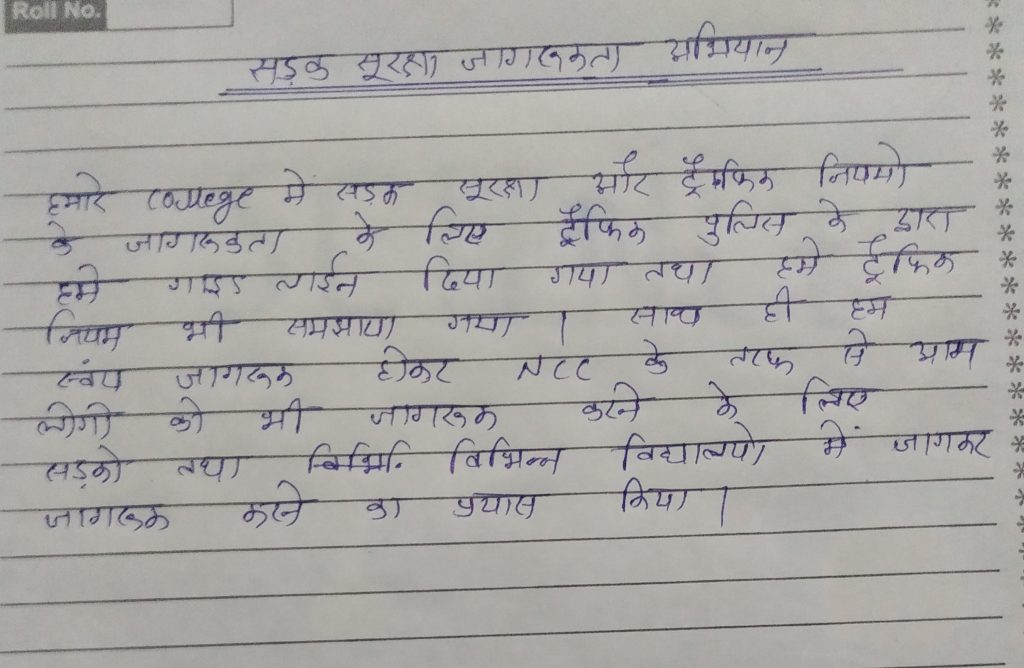 Roll No.
सड़क सूरक्षा जागरूकता अभियान
हमारे college मे सड़क सूरक्षा और ट्रैफिक नियमो
के जागरूकता के लिए ट्रैफिक पुलिस के द्वारा
हमे गाइड लाईन दिया गया तथा हमे ट्रैफिक
नियम भी समझाया गया । साथ ही हम
स्वंय जागरूक होकर NCC के तरफ से आम
लोगो को भी जागरूक करने के लिए
सड़को तथा विभिन्न विद्यालयो में जागकर
जागरूक करने का प्रयास किया ।